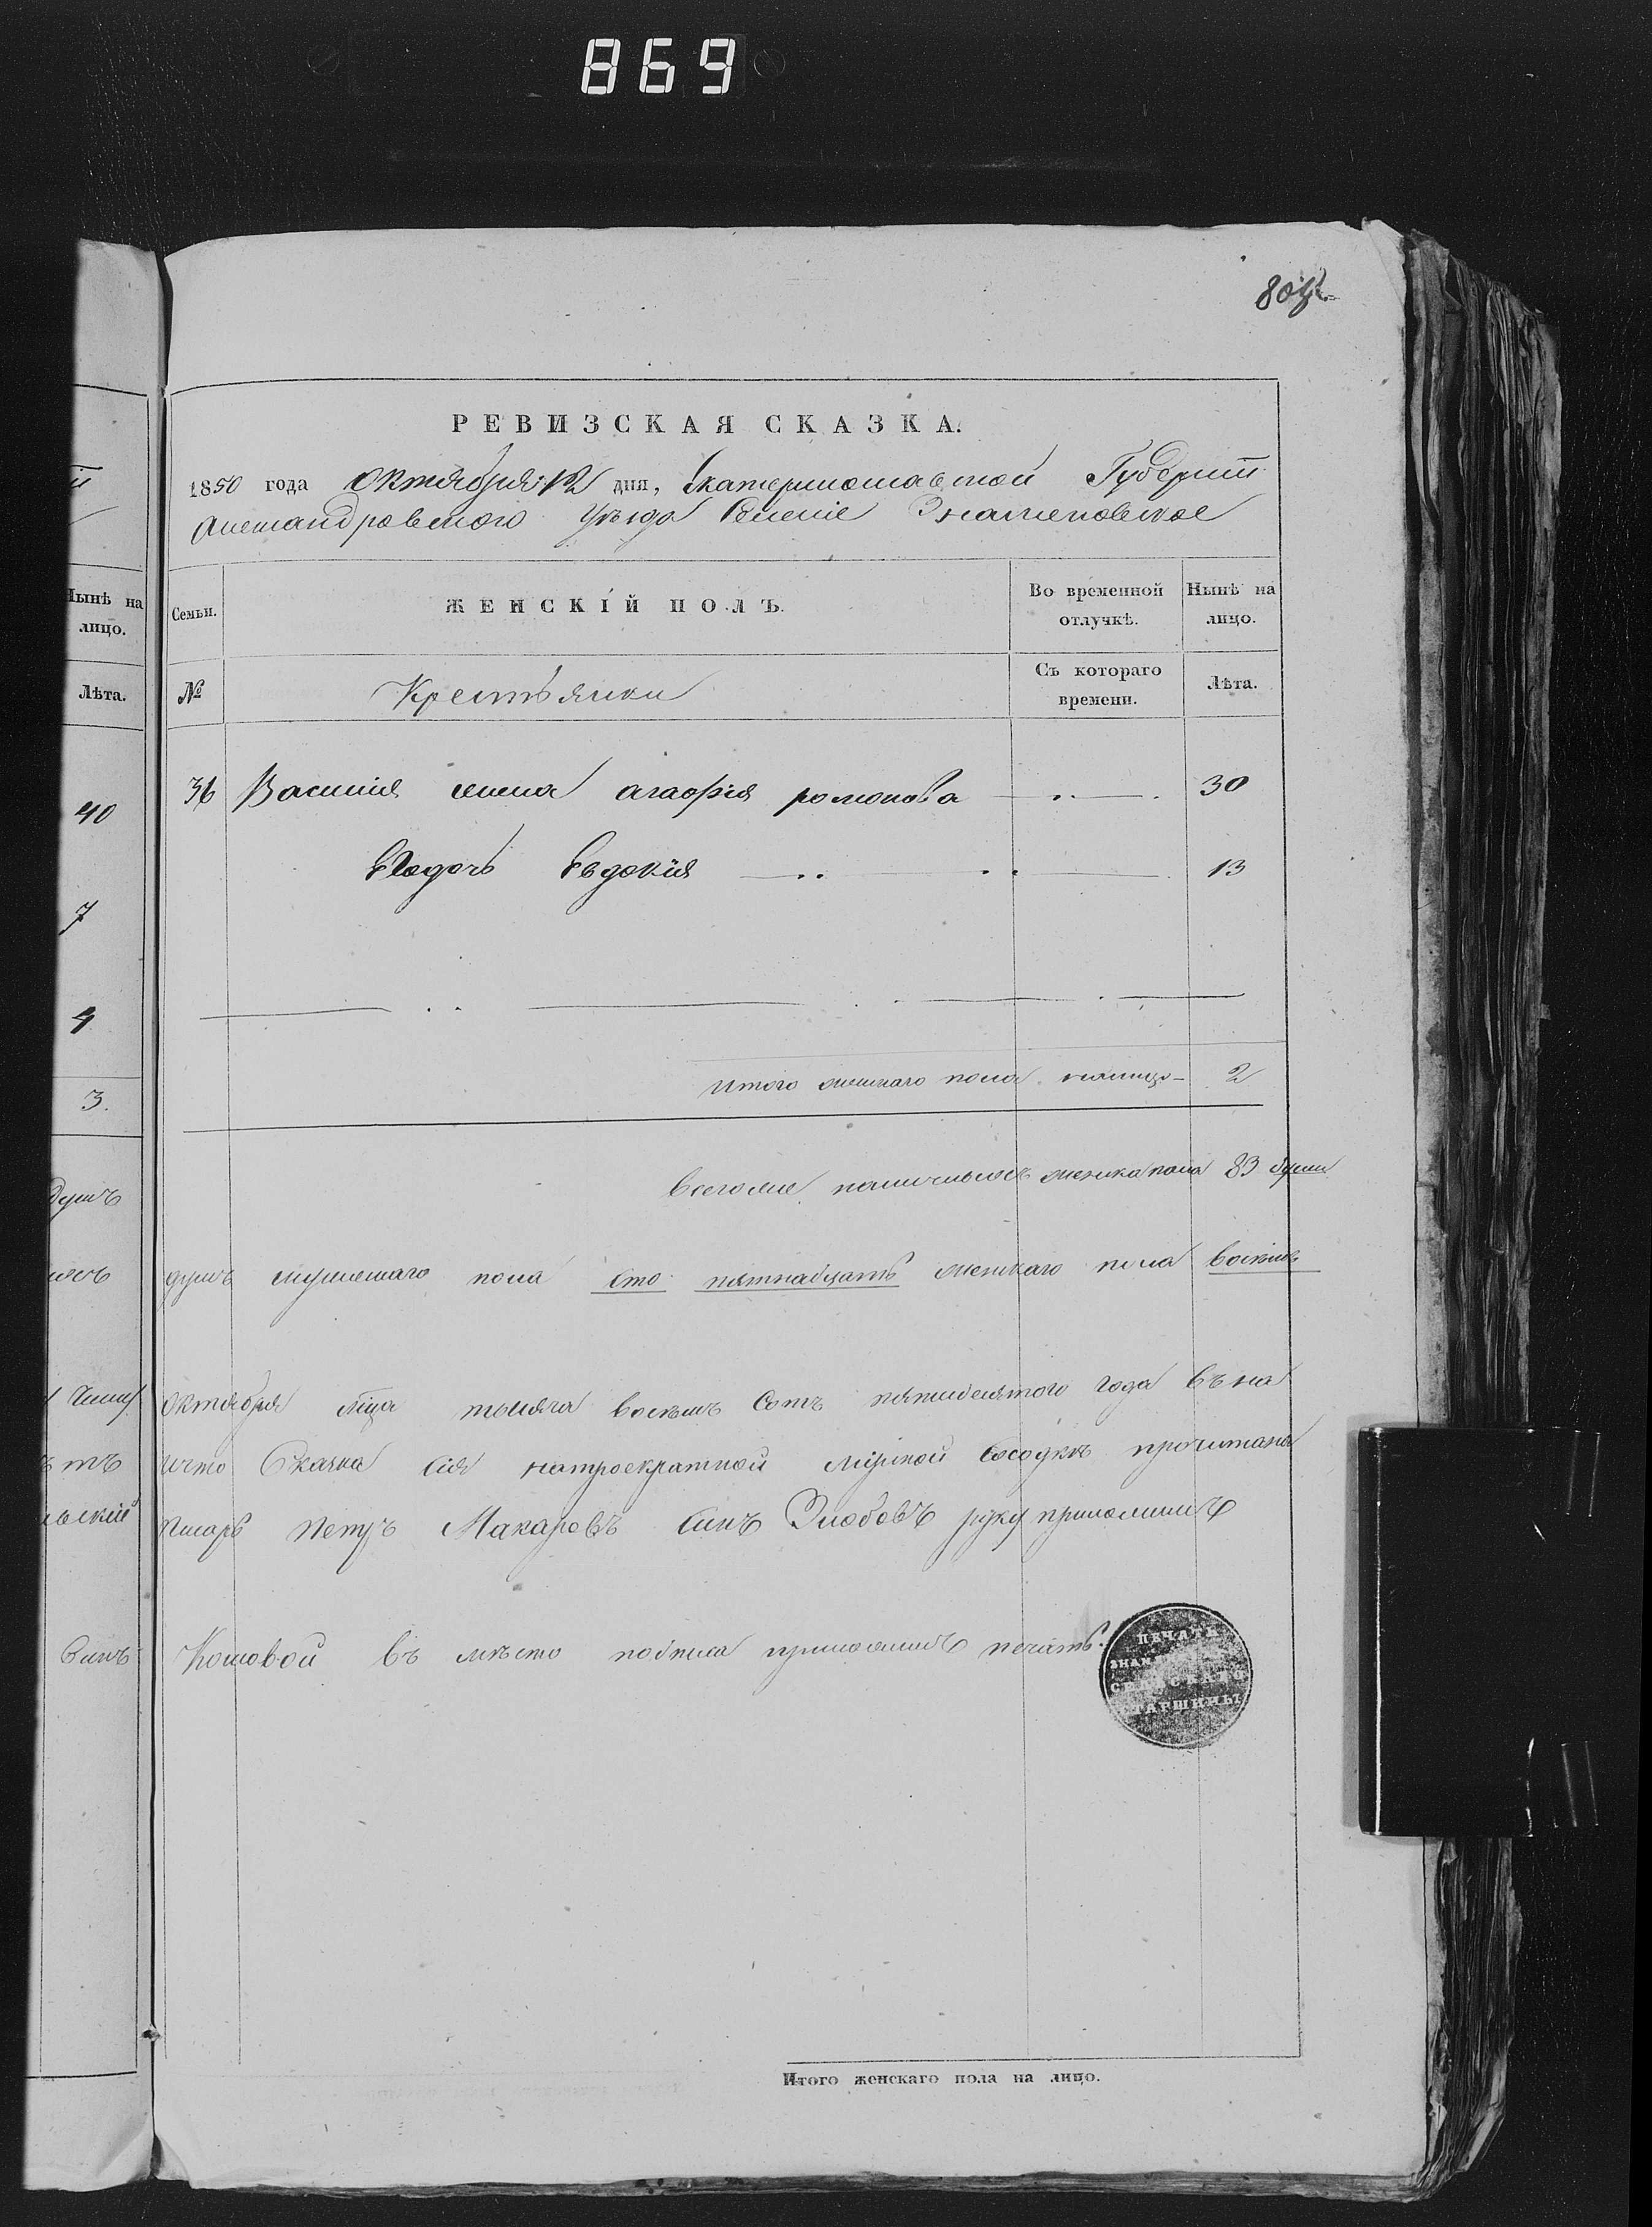 869
РЕВИЗСКАЯ СКАЗКА.
1850 года октября 12 дня, Екатеринославской Губерніи
Александровского Уѣзда Селеніе Знаменовское
Нынѣ на лицо.
Лѣта.
40
7
4
3.
душъ
Семьи.
ЖЕНСКІЙ ПОЛЪ.
Во временной отлучкѣ.
Нынѣ на лицо.
№
Крестьянки
Съ котораго времени.
Лѣта.
36 Василія жена агафія романова 30
Евдокія 13
итого женскаго пола налицо 2
Всего наличныхъ женска пола 83 души
душъ мужескаго пола сто пятнадцать женскаго пола восемь
Октября мѣсца тысяча восемь сотъ пятидесятого года въ на
что Сказка сія натроекратной мірской сходкѣ прочитана
Писарь Петръ Макаровъ сынъ Злобовъ руку приложилъ
сынъ Кошовой въ мѣсто подписа приложилъ печать.
ПЕЧАТЬ
СТАРШИНЫ
Итого женскаго пола на лицо.